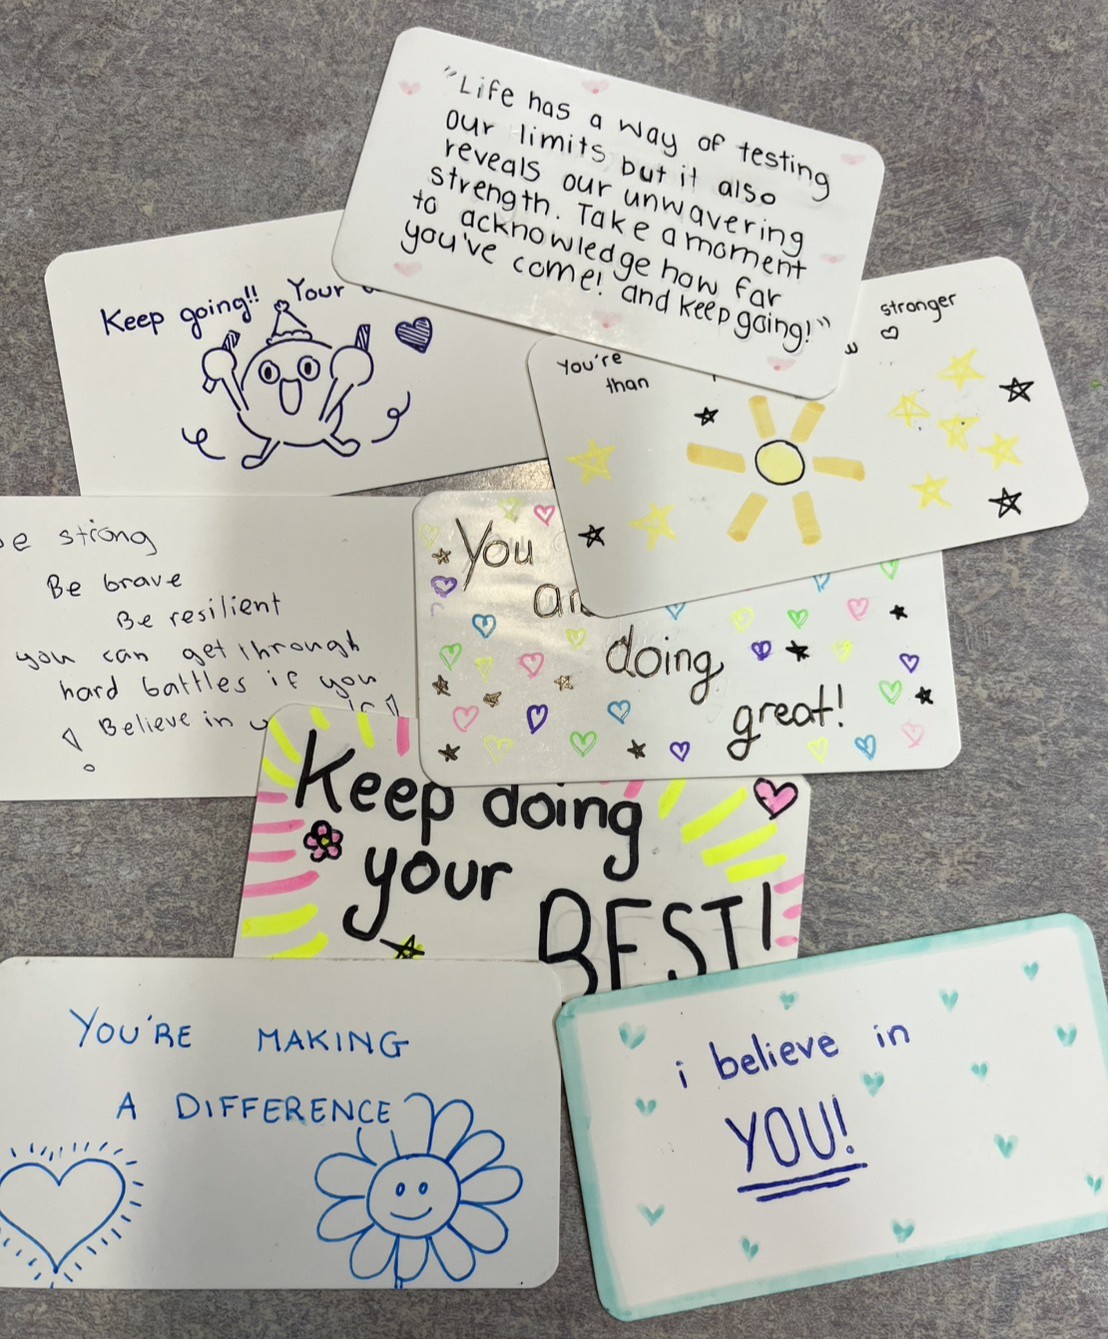 "Life has a way of testing
our limits, but it also
reveals our unwavering
strength. Take a moment
to acknowledge how far
you've come! and keep going!"
Keep going!! Your
You're
than
stronger
Be strong
Be brave
Be resilient
you can get through
hard battles if you
Believe in
You
doing
great!
Keep doing
your
BEST!
YOU'RE MAKING
A DIFFERENCE
i believe in
YOU!